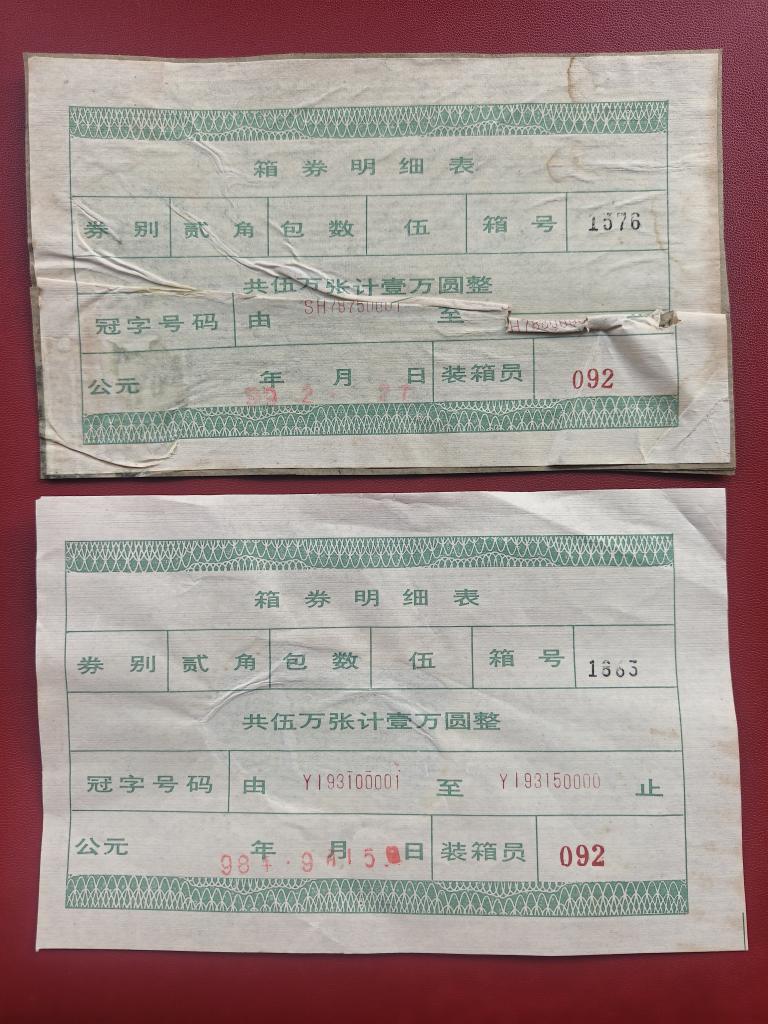 箱券明细表
券别 贰角 包数 伍 箱号 1576
共伍万张计壹万圆整
冠字号码 由 SH78750001 至
公元 年 月 日 装箱员 092
箱券明细表
券别 贰角 包数 伍 箱号 1863
共伍万张计壹万圆整
冠字号码 由 YI93100001 至 YI93150000 止
公元 年 月 日 装箱员 092